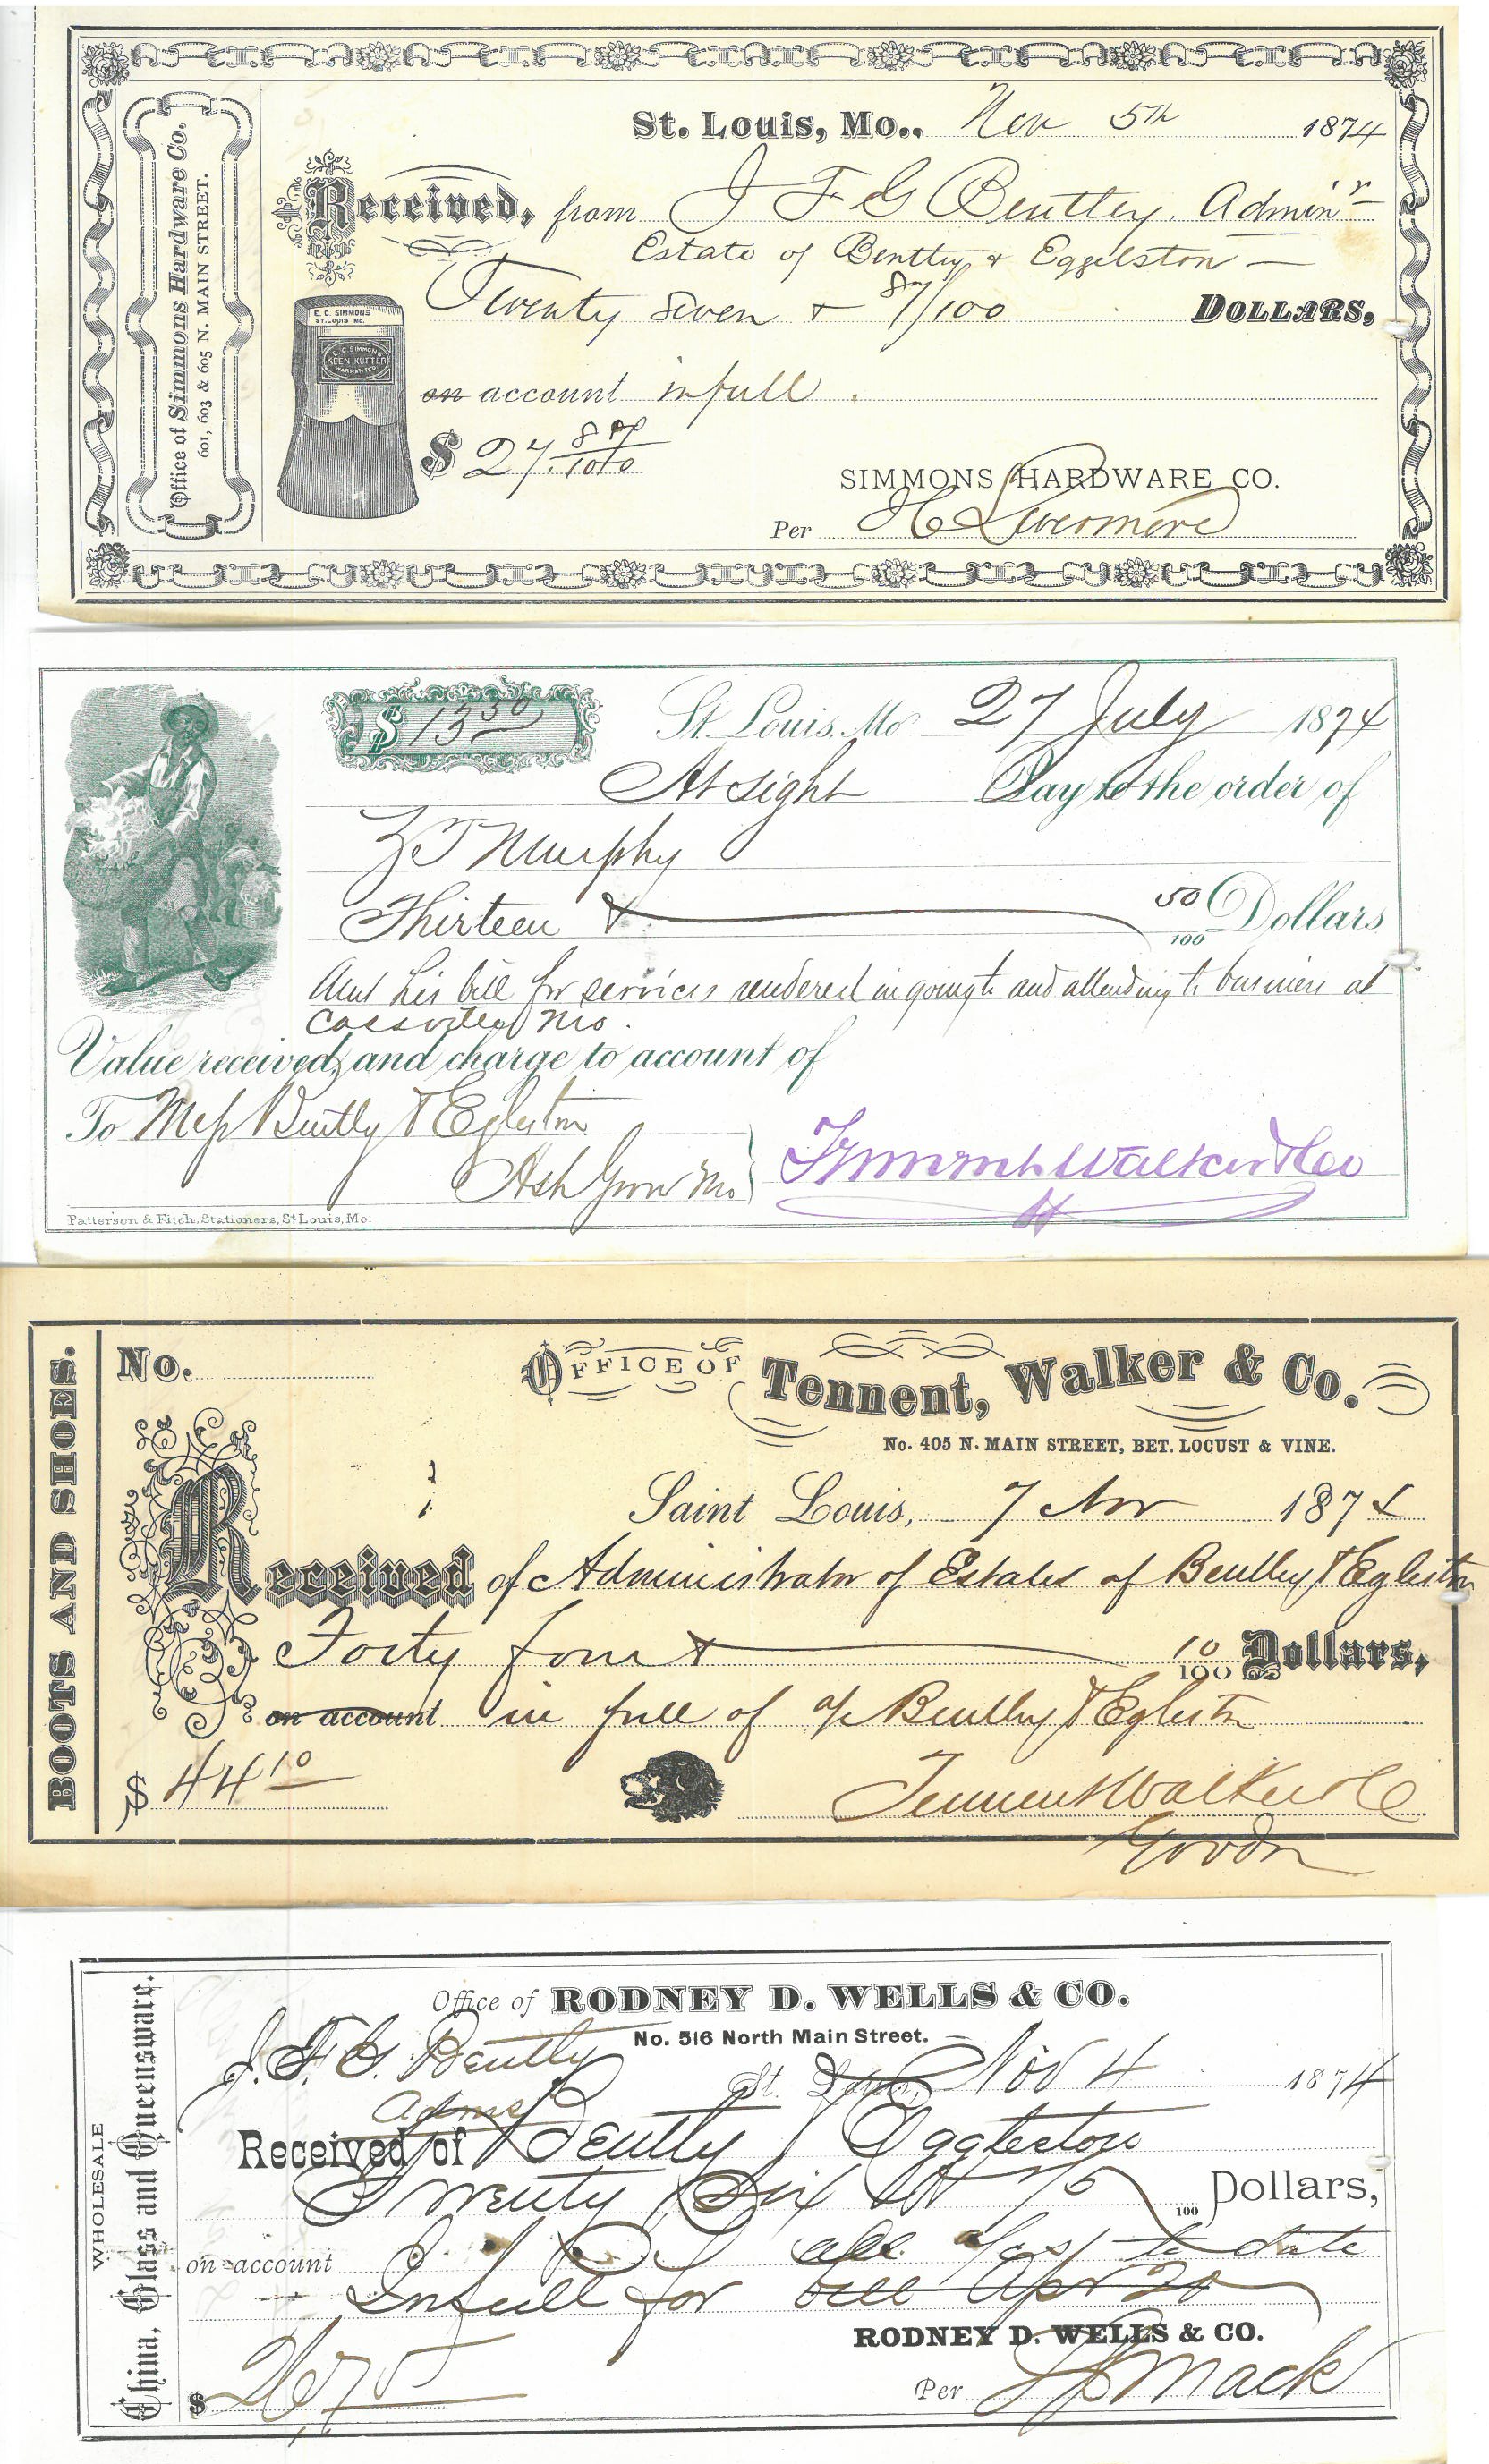 Office of Simmons Hardware Co.
601, 603 & 605 N. MAIN STREET.
St. Louis, Mo., Nov 5th 1874
Received, from J F G Bentley. Admin'r
Estate of Bentley & Eggelston —
Twenty Seven & 87/100 DOLLARS,
E. C. SIMMONS
ST. LOUIS MO.
E. C. SIMMONS
KEEN KUTTER
WARRANTED
on account in full.
$ 27. 87/100
SIMMONS HARDWARE CO.
Per H C Livermore
$ 13 50
St. Louis, Mo. 27 July 1874
At sight Pay to the order of
Z T Murphy
Thirteen & 50/100 Dollars
Amt his bill for services rendered in going to and attending to business at
Cassville Mo.
Value received, and charge to account of
To Mess Bently & Egleston
Ash Grove Mo
Tennent Walker & Co
Patterson & Fitch, Stationers, St Louis, Mo.
BOOTS AND SHOES.
No.
OFFICE OF Tennent, Walker & Co.
No. 405 N. MAIN STREET, BET. LOCUST & VINE.
Saint Louis, 7 Nov 1874
Received of Administrator of Estates of Bentley & Egleston
Forty four & 10/100 Dollars,
on account in full of a/c Bentley & Egleston
$ 44 10
Tennent Walker & Co
WHOLESALE
China, Glass and Queensware.
Office of RODNEY D. WELLS & CO.
No. 516 North Main Street.
J. F. G. Bently
Adms
St. Louis, Nov 4 1874
Received of Bently & Eggleston
Twenty Six 75/100 Dollars,
on account all a/cs to date
In full for bill Apr 20
RODNEY D. WELLS & CO.
$ 26 75
Per Mack